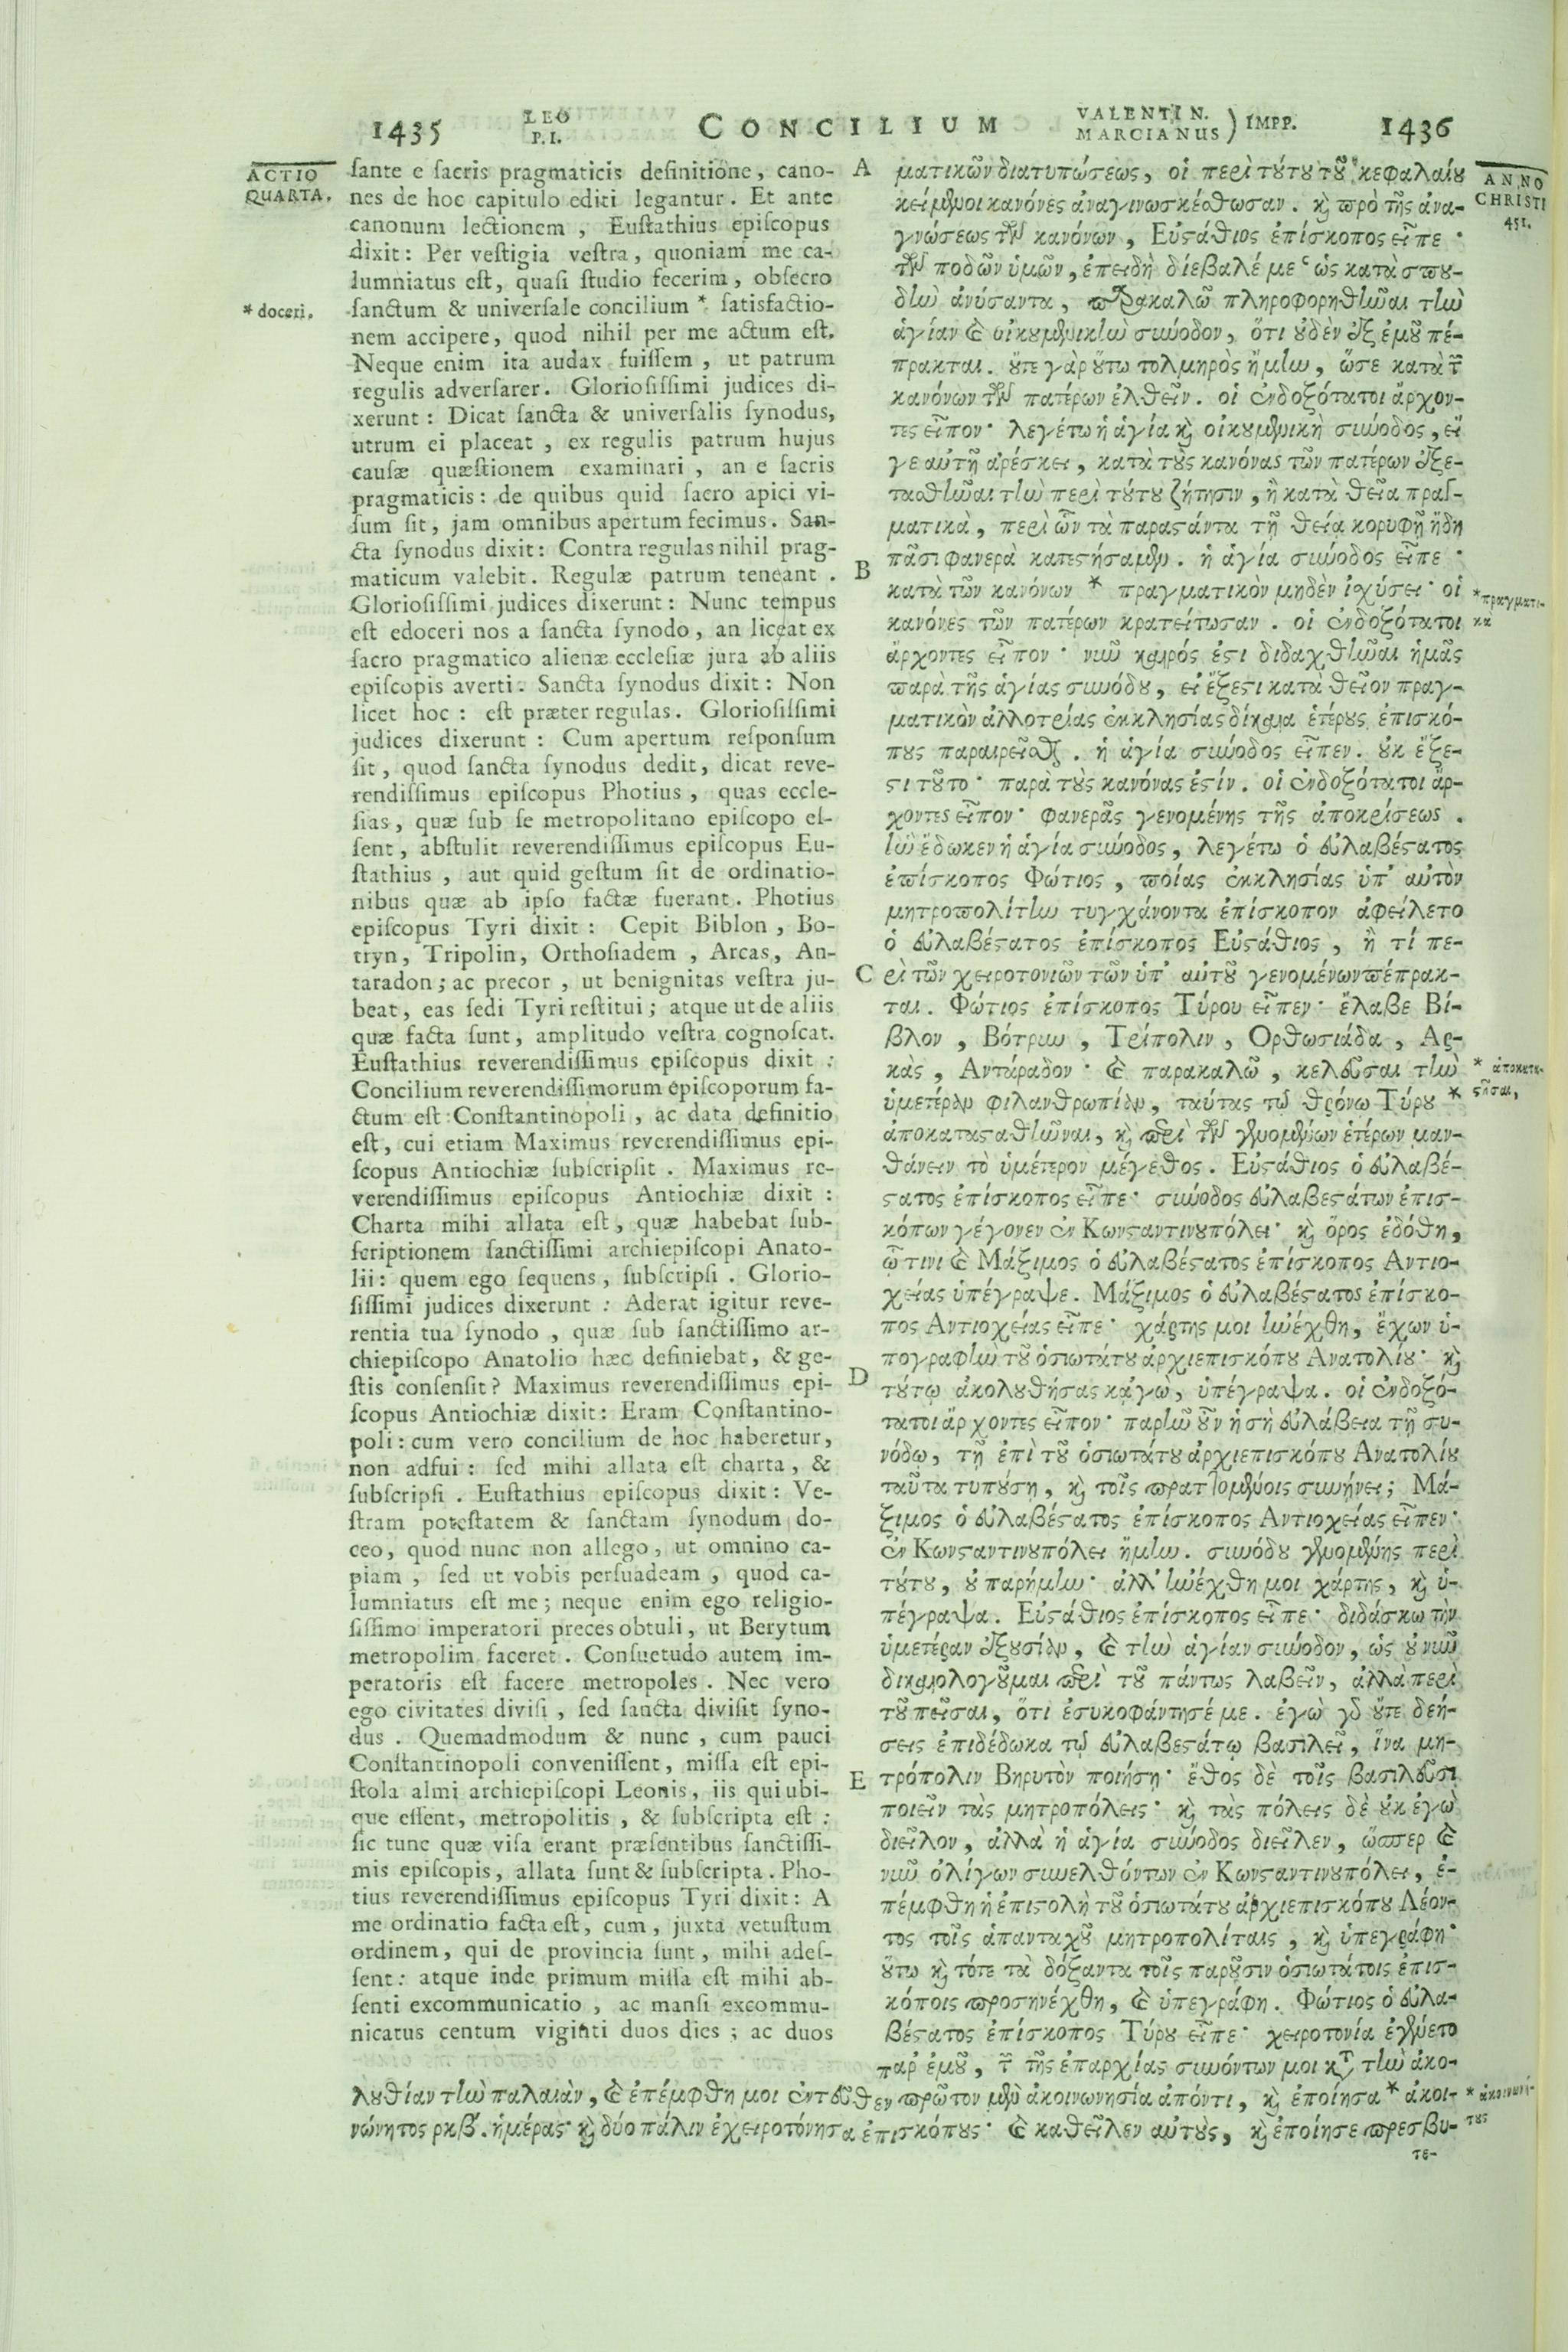 1435 LEO P. I. CONCILIUM VALENTIN. MARCIANUS ) IMPP. 1436
ACTIO
QUARTA.
ſante e ſacris pragmaticis definitione, cano-
nes de hoc capitulo editi legantur. Et ante
canonum lectionem, Euſtathius epiſcopus
dixit: Per veſtigia veſtra, quoniam me ca-
lumniatus eſt, quaſi ſtudio fecerim, obſecro
* doceri.
ſanctum & univerſale concilium * ſatisfactio-
nem accipere, quod nihil per me actum eſt.
Neque enim ita audax fuiſſem, ut patrum
regulis adverſarer. Glorioſiſſimi judices di-
xerunt: Dicat ſancta & univerſalis ſynodus,
utrum ei placeat, ex regulis patrum hujus
cauſæ quæſtionem examinari, an e ſacris
pragmaticis: de quibus quid ſacro apici vi-
ſum ſit, jam omnibus apertum fecimus. San-
cta ſynodus dixit: Contra regulas nihil prag-
maticum valebit. Regulæ patrum teneant.
Glorioſiſſimi judices dixerunt: Nunc tempus
eſt edoceri nos a ſancta ſynodo, an liceat ex
ſacro pragmatico alienæ eccleſiæ jura ab aliis
epiſcopis averti. Sancta ſynodus dixit: Non
licet hoc: eſt præter regulas. Glorioſiſſimi
judices dixerunt: Cum apertum reſponſum
ſit, quod ſancta ſynodus dedit, dicat reve-
rendiſſimus epiſcopus Photius, quas eccle-
ſias, quæ ſub ſe metropolitano epiſcopo eſ-
ſent, abſtulit reverendiſſimus epiſcopus Eu-
ſtathius, aut quid geſtum ſit de ordinatio-
nibus quæ ab ipſo factæ fuerant. Photius
epiſcopus Tyri dixit: Cepit Biblon, Bo-
tryn, Tripolin, Orthoſiadem, Arcas, An-
taradon; ac precor, ut benignitas veſtra ju-
beat, eas ſedi Tyri reſtitui; atque ut de aliis
quæ facta ſunt, amplitudo veſtra cognoſcat.
Euſtathius reverendiſſimus epiſcopus dixit:
Concilium reverendiſſimorum epiſcoporum fa-
ctum eſt Conſtantinopoli, ac data definitio
eſt, cui etiam Maximus reverendiſſimus epi-
ſcopus Antiochiæ ſubſcripſit. Maximus re-
verendiſſimus epiſcopus Antiochiæ dixit:
Charta mihi allata eſt, quæ habebat ſub-
ſcriptionem ſanctiſſimi archiepiſcopi Anato-
lii: quem ego ſequens, ſubſcripſi. Glorio-
ſiſſimi judices dixerunt: Aderat igitur reve-
rentia tua ſynodo, quæ ſub ſanctiſſimo ar-
chiepiſcopo Anatolio hæc definiebat, & ge-
ſtis conſenſit? Maximus reverendiſſimus epi-
ſcopus Antiochiæ dixit: Eram Conſtantino-
poli: cum vero concilium de hoc haberetur,
non adfui: ſed mihi allata eſt charta, &
ſubſcripſi. Euſtathius epiſcopus dixit: Ve-
ſtram poteſtatem & ſanctam ſynodum do-
ceo, quod nunc non allego, ut omnino ca-
piam, ſed ut vobis perſuadeam, quod ca-
lumniatus eſt me; neque enim ego religio-
ſiſſimo imperatori preces obtuli, ut Berytum
metropolim faceret. Conſuetudo autem im-
peratoris eſt facere metropoles. Nec vero
ego civitates diviſi, ſed ſancta diviſit ſyno-
dus. Quemadmodum & nunc, cum pauci
Conſtantinopoli conveniſſent, miſſa eſt epi-
ſtola almi archiepiſcopi Leonis, iis qui ubi-
que eſſent, metropolitis, & ſubſcripta eſt:
ſic tunc quæ viſa erant præſentibus ſanctiſſi-
mis epiſcopis, allata ſunt & ſubſcripta. Pho-
tius reverendiſſimus epiſcopus Tyri dixit: A
me ordinatio facta eſt, cum, juxta vetuſtum
ordinem, qui de provincia ſunt, mihi adeſ-
ſent: atque inde primum miſſa eſt mihi ab-
ſenti excommunicatio, ac manſi excommu-
nicatus centum viginti duos dies; ac duos
A
B
C
D
E
ANNO
CHRISTI
451.
ματικῶν διατυπώσεως, οἱ περὶ τούτου τοῦ κεφαλαίου
κείμενοι κανόνες ἀναγινωσκέσθωσαν. καὶ πρὸ τῆς ἀνα-
γνώσεως τῶν κανόνων, Εὐστάθιος ἐπίσκοπος εἶπε·
τῶν ποδῶν ὑμῶν, ἐπειδὴ διέβαλέ με ὡς κατὰ σπου-
δὴν ἀνύσαντα, παρακαλῶ πληροφορηθῆναι τὴν
ἁγίαν καὶ οἰκουμενικὴν σύνοδον, ὅτι οὐδὲν ἐξ ἐμοῦ πέ-
πρακται. οὔτε γὰρ οὕτω τολμηρὸς ἤμην, ὥστε κατὰ τῶν
κανόνων τῶν πατέρων ἐλθεῖν. οἱ ἐνδοξότατοι ἄρχον-
τες εἶπον· λεγέτω ἡ ἁγία καὶ οἰκουμενικὴ σύνοδος, εἴ
γε αὐτῇ ἀρέσκει, κατὰ τοὺς κανόνας τῶν πατέρων ἐξε-
τασθῆναι τὴν περὶ τούτου ζήτησιν, ἢ κατὰ θεῖα πραγ-
ματικὰ, περὶ ὧν τὰ παραστάντα τῇ θείᾳ κορυφῇ ἤδη
πᾶσι φανερὰ κατεστήσαμεν. ἡ ἁγία σύνοδος εἶπε·
κατὰ τῶν κανόνων * πραγματικὸν μηδὲν ἰσχύσει· οἱ
* πραγματι-
κὰ
κανόνες τῶν πατέρων κρατείτωσαν. οἱ ἐνδοξότατοι
ἄρχοντες εἶπον· νῦν καιρός ἐστι διδαχθῆναι ἡμᾶς
παρὰ τῆς ἁγίας συνόδου, εἰ ἔξεστι κατὰ θεῖον πραγ-
ματικὸν ἀλλοτρίας ἐκκλησίας δίκαια ἑτέρους ἐπισκό-
πους παραιρεῖσθαι. ἡ ἁγία σύνοδος εἶπεν. οὐκ ἔξε-
στι τοῦτο· παρὰ τοὺς κανόνας ἐστίν. οἱ ἐνδοξότατοι ἄρ-
χοντες εἶπον· φανερᾶς γενομένης τῆς ἀποκρίσεως.
ἣν ἔδωκεν ἡ ἁγία σύνοδος, λεγέτω ὁ εὐλαβέστατος
ἐπίσκοπος Φώτιος, ποίας ἐκκλησίας ὑπ' αὐτὸν
μητροπολίτην τυγχάνοντα ἐπίσκοπον ἀφείλετο
ὁ εὐλαβέστατος ἐπίσκοπος Εὐστάθιος, ἢ τί πε-
ρὶ τῶν χειροτονιῶν τῶν ὑπ' αὐτοῦ γενομένων πέπρακ-
ται. Φώτιος ἐπίσκοπος Τύρου εἶπεν· ἔλαβε Βί-
βλον, Βότρυν, Τρίπολιν, Ορθωσιάδα, Αρ-
κὰς, Αντάραδον· καὶ παρακαλῶ, κελεῦσαι τὴν
ὑμετέραν φιλανθρωπίαν, ταύτας τῷ θρόνῳ Τύρου *
ἀποκατασταθῆναι, καὶ περὶ τῶν γενομένων ἑτέρων μαν-
θάνειν τὸ ὑμέτερον μέγεθος. Εὐστάθιος ὁ εὐλαβέ-
στατος ἐπίσκοπος εἶπε· σύνοδος εὐλαβεστάτων ἐπισ-
κόπων γέγονεν ἐν Κωνσταντινουπόλει· καὶ ὅρος ἐδόθη,
ᾧτινι καὶ Μάξιμος ὁ εὐλαβέστατος ἐπίσκοπος Αντιο-
χείας ὑπέγραψε. Μάξιμος ὁ εὐλαβέστατος ἐπίσκο-
πος Αντιοχείας εἶπε· χάρτης μοι ἠνέχθη, ἔχων ὑ-
πογραφὴν τοῦ ὁσιωτάτου ἀρχιεπισκόπου Ανατολίου· καὶ
τούτῳ ἀκολουθήσας κἀγὼ, ὑπέγραψα. οἱ ἐνδοξό-
τατοι ἄρχοντες εἶπον· παρῆν οὖν ἡ σὴ εὐλάβεια τῇ συ-
νόδῳ, τῇ ἐπὶ τοῦ ὁσιωτάτου ἀρχιεπισκόπου Ανατολίου
ταῦτα τυπούσῃ, καὶ τοῖς πραττομένοις συνῄνει; Μά-
ξιμος ὁ εὐλαβέστατος ἐπίσκοπος Αντιοχείας εἶπεν·
ἐν Κωνσταντινουπόλει ἤμην. συνόδου γενομένης περὶ
τούτου, οὐ παρήμην· ἀλλ' ἠνέχθη μοι χάρτης, καὶ ὑ-
πέγραψα. Εὐστάθιος ἐπίσκοπος εἶπε· διδάσκω τὴν
ὑμετέραν ἐξουσίαν, καὶ τὴν ἁγίαν σύνοδον, ὡς οὐ νῦν
δικαιολογοῦμαι περὶ τοῦ πάντως λαβεῖν, ἀλλὰ περὶ
τοῦ πεῖσαι, ὅτι ἐσυκοφάντησέ με. ἐγὼ γὰρ οὔτε δεή-
σεις ἐπιδέδωκα τῷ εὐλαβεστάτῳ βασιλεῖ, ἵνα μη-
τρόπολιν Βηρυτὸν ποιήσῃ· ἔθος δὲ τοῖς βασιλεῦσι
ποιεῖν τὰς μητροπόλεις· καὶ τὰς πόλεις δὲ οὐκ ἐγὼ
διεῖλον, ἀλλὰ ἡ ἁγία σύνοδος διεῖλεν, ὥσπερ καὶ
νῦν ὀλίγων συνελθόντων ἐν Κωνσταντινουπόλει, ἐ-
πέμφθη ἡ ἐπιστολὴ τοῦ ὁσιωτάτου ἀρχιεπισκόπου Λέον-
τος τοῖς ἁπανταχοῦ μητροπολίταις, καὶ ὑπεγράφη·
οὕτω καὶ τότε τὰ δόξαντα τοῖς παροῦσιν ὁσιωτάτοις ἐπισ-
κόποις προσηνέχθη, καὶ ὑπεγράφη. Φώτιος ὁ εὐλα-
βέστατος ἐπίσκοπος Τύρου εἶπε· χειροτονία ἐγένετο
παρ' ἐμοῦ, τῶν τῆς ἐπαρχίας συνόντων μοι κατὰ τὴν ἀκο-
λουθίαν τὴν παλαιὰν, καὶ ἐπέμφθη μοι ἐντεῦθεν πρῶτον μὲν ἀκοινωνησία ἀπόντι, καὶ ἐποίησα * ἀκοι-
νώνητος ρκβʹ. ἡμέρας· καὶ δύο πάλιν ἐχειροτόνησα ἐπισκόπους· καὶ καθεῖλεν αὐτοὺς, καὶ ἐποίησε πρεσβυ-
τε-